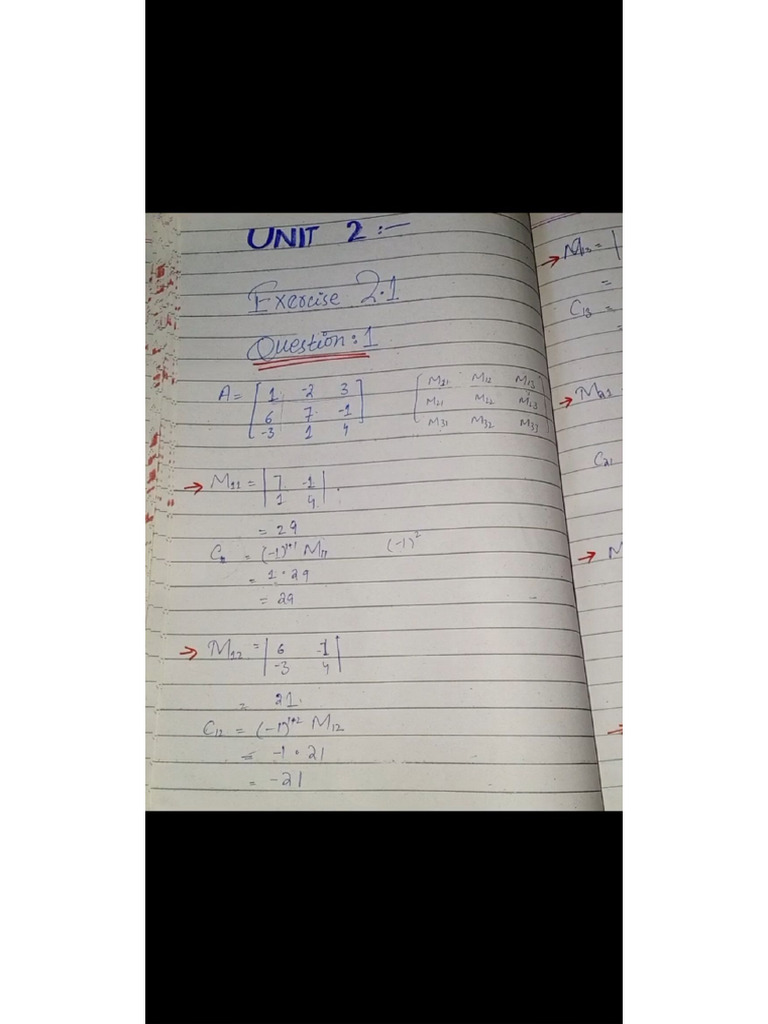 UNIT 2 :-
Exercise 2.1
Question: 1
A = [ 1 -2 3
6 7 -1
-3 1 4 ]
[ M11 M12 M13
M21 M22 M23
M31 M32 M33 ]
→ M11 = | 7 -1
1 4 | .
= 29
= (-1)^1+1 M11 (-1)^2
= 1 · 29
= 29
→ M12 = | 6 -1
-3 4 |
= 21.
C12 = (-1)^1+2 M12
= -1 · 21
= -21
→ M13 = |
=
C13 =
=
→ M21
C21
→ M
→